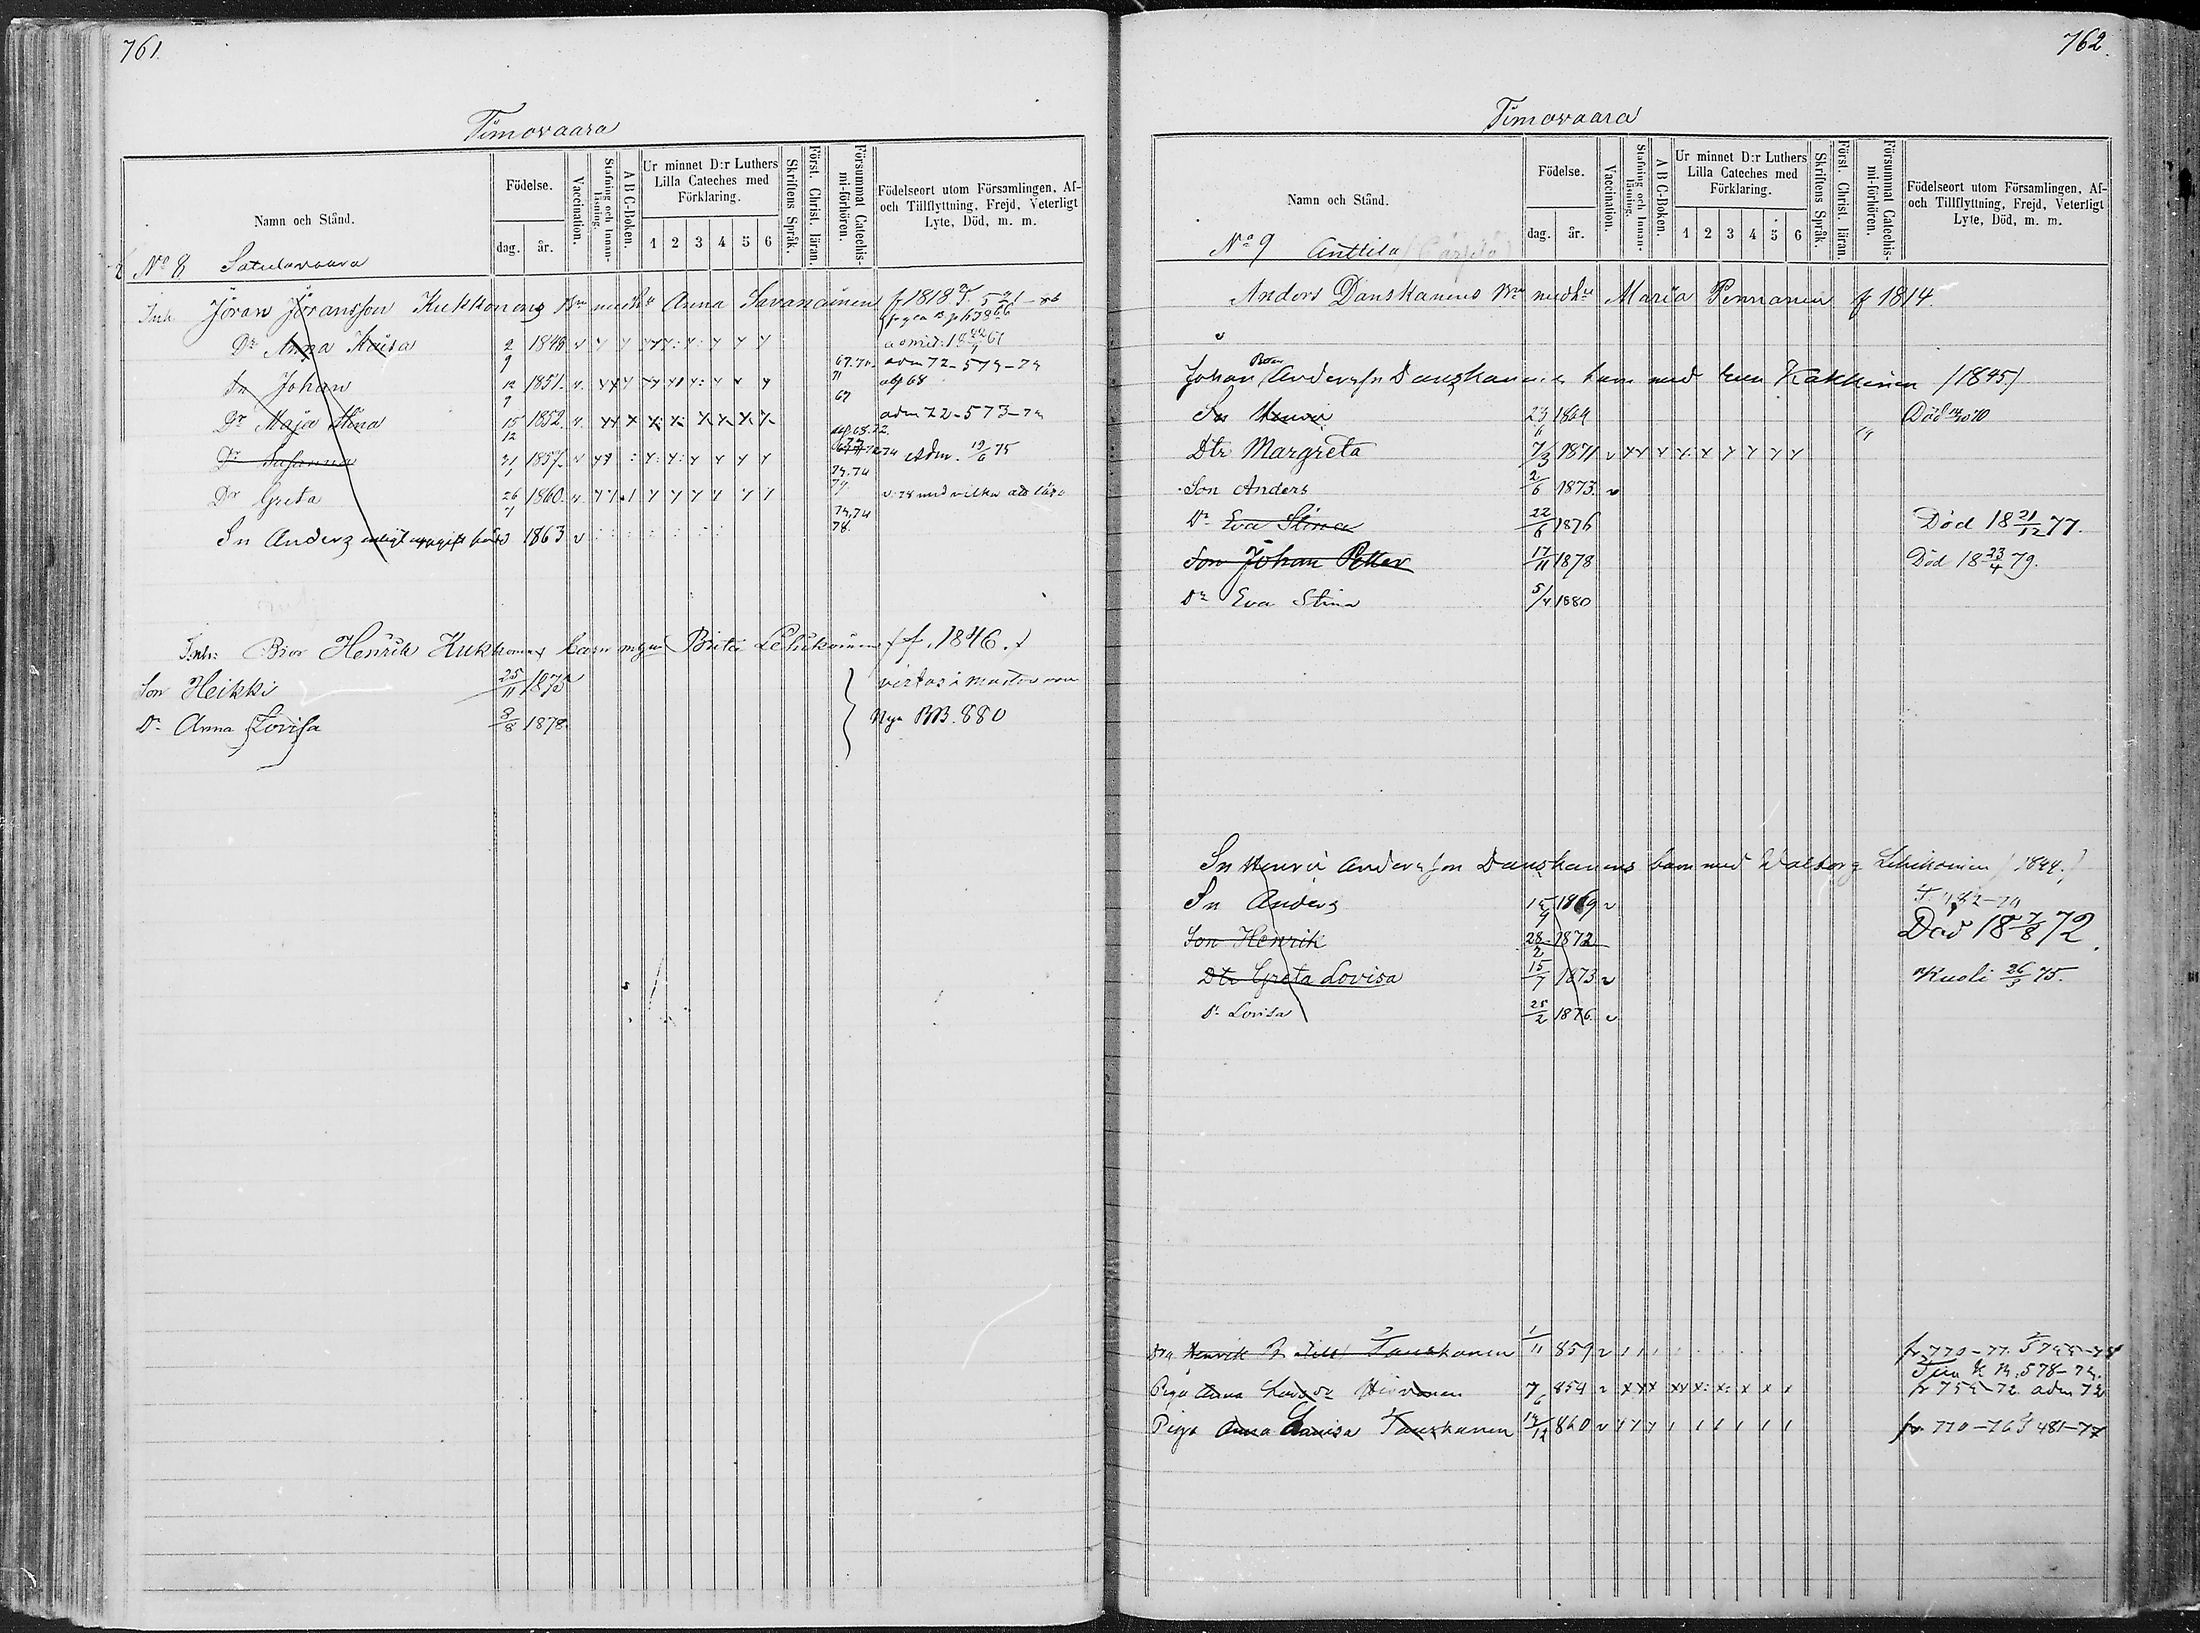 761.
Timovaara
Namn och Stånd.
Födelse.
dag. år.
Vaccination.
Stafning och Innanläsning.
A B C-Boken.
Ur minnet D:r Luthers Lilla Cateches med Förklaring.
1 2 3 4 5 6
Skriftens Språk.
Först. Christ. läran.
Försummat Catechismi-förhören.
Födelseort utom Församlingen, Af- och Tillflyttning, Frejd, Veterligt Lyte, Död, m. m.
No 8 Satulavaara
Inh. Jöran Jöransson Kukkonens Bn medhu Anna Savanainen f 1818
Dr Anna Kaisa 2/9 1848 v
adm 72-573-74
Sn Johan 12/9 1851. v. 67 afg 68
Dr Maja Stina 15/12 1852. v. adm 72-573-74
Dr Susanna 21/1 1857. v Adm. 19/6 75
Dr Greta 26/7 1860. v.
Sn Anders 1863 v
Inh: Bror Henrik Kukkonens barn m Brita Lehikoinen (f. 1846.)
Son Heikki 25/11 1875
Dr Anna Lovisa 3/8 1878. Nya BB. 880
762.
Timovaara
Namn och Stånd.
Födelse.
dag. år.
Vaccination.
Stafning och Innanläsning.
A B C-Boken.
Ur minnet D:r Luthers Lilla Cateches med Förklaring.
1 2 3 4 5 6
Skriftens Språk.
Först. Christ. läran.
Försummat Catechismi-förhören.
Födelseort utom Församlingen, Af- och Tillflyttning, Frejd, Veterligt Lyte, Död, m. m.
No 9 Anttila
Anders Danskanens Bn medhu Maria Pennanen f 1814.
Johan Andersson Danskanens barn med Kakkinen (1845)
Sn Henric 23 1864 Död
Dtr Margreta 7/3 1871 v
Son Anders 2/6 1873. v
Dr Eva Stina 22/6 1876 Död 18 21/12 77.
Son Johan Petter 17/11 1878 Död 18 23/4 79.
Dr Eva Stina 5/4 1880
Sn Henric Andersson Danskanens barn med Walborg Lehikoinen (1844.)
Sn Anders 1869 v
Son Henrik 28/2 1872 Död 18 7/8 72.
Dtr Greta Lovisa 15/7 1873 v Kuoli 26/3 75.
Dr Lovisa 25/2 1876. v
Drg Henrik Tanskanen 1/11 859 v fr 770-77.
Piga Anna Lovisa Hirvonen 7/6 854 v fr 754-72 adm 72
Piga Anna Lovisa Tanskanen 14/12 860 v fr. 770-76 T 481-77